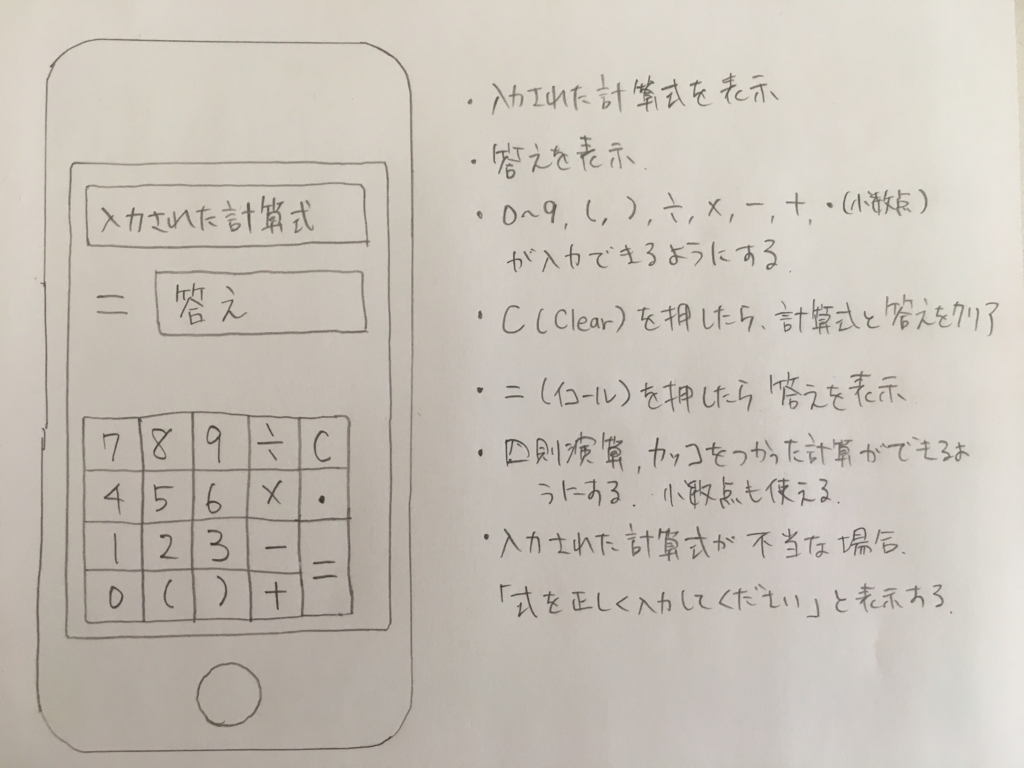 入力された計算式
= 答え
7 8 9 ÷ C
4 5 6 × .
1 2 3 − =
0 ( ) +
・入力された計算式を表示
・答えを表示.
・0~9, (, ), ÷, ×, −, +, ・(小数点)
が入力できるようにする.
・C (Clear) を押したら、計算式と答えをクリア
・= (イコール) を押したら 答えを表示
・四則演算, カッコをつかった計算ができるよ
うにする. 小数点も使える.
・入力された計算式が 不当な場合.
「式を正しく入力してください」と表示する.